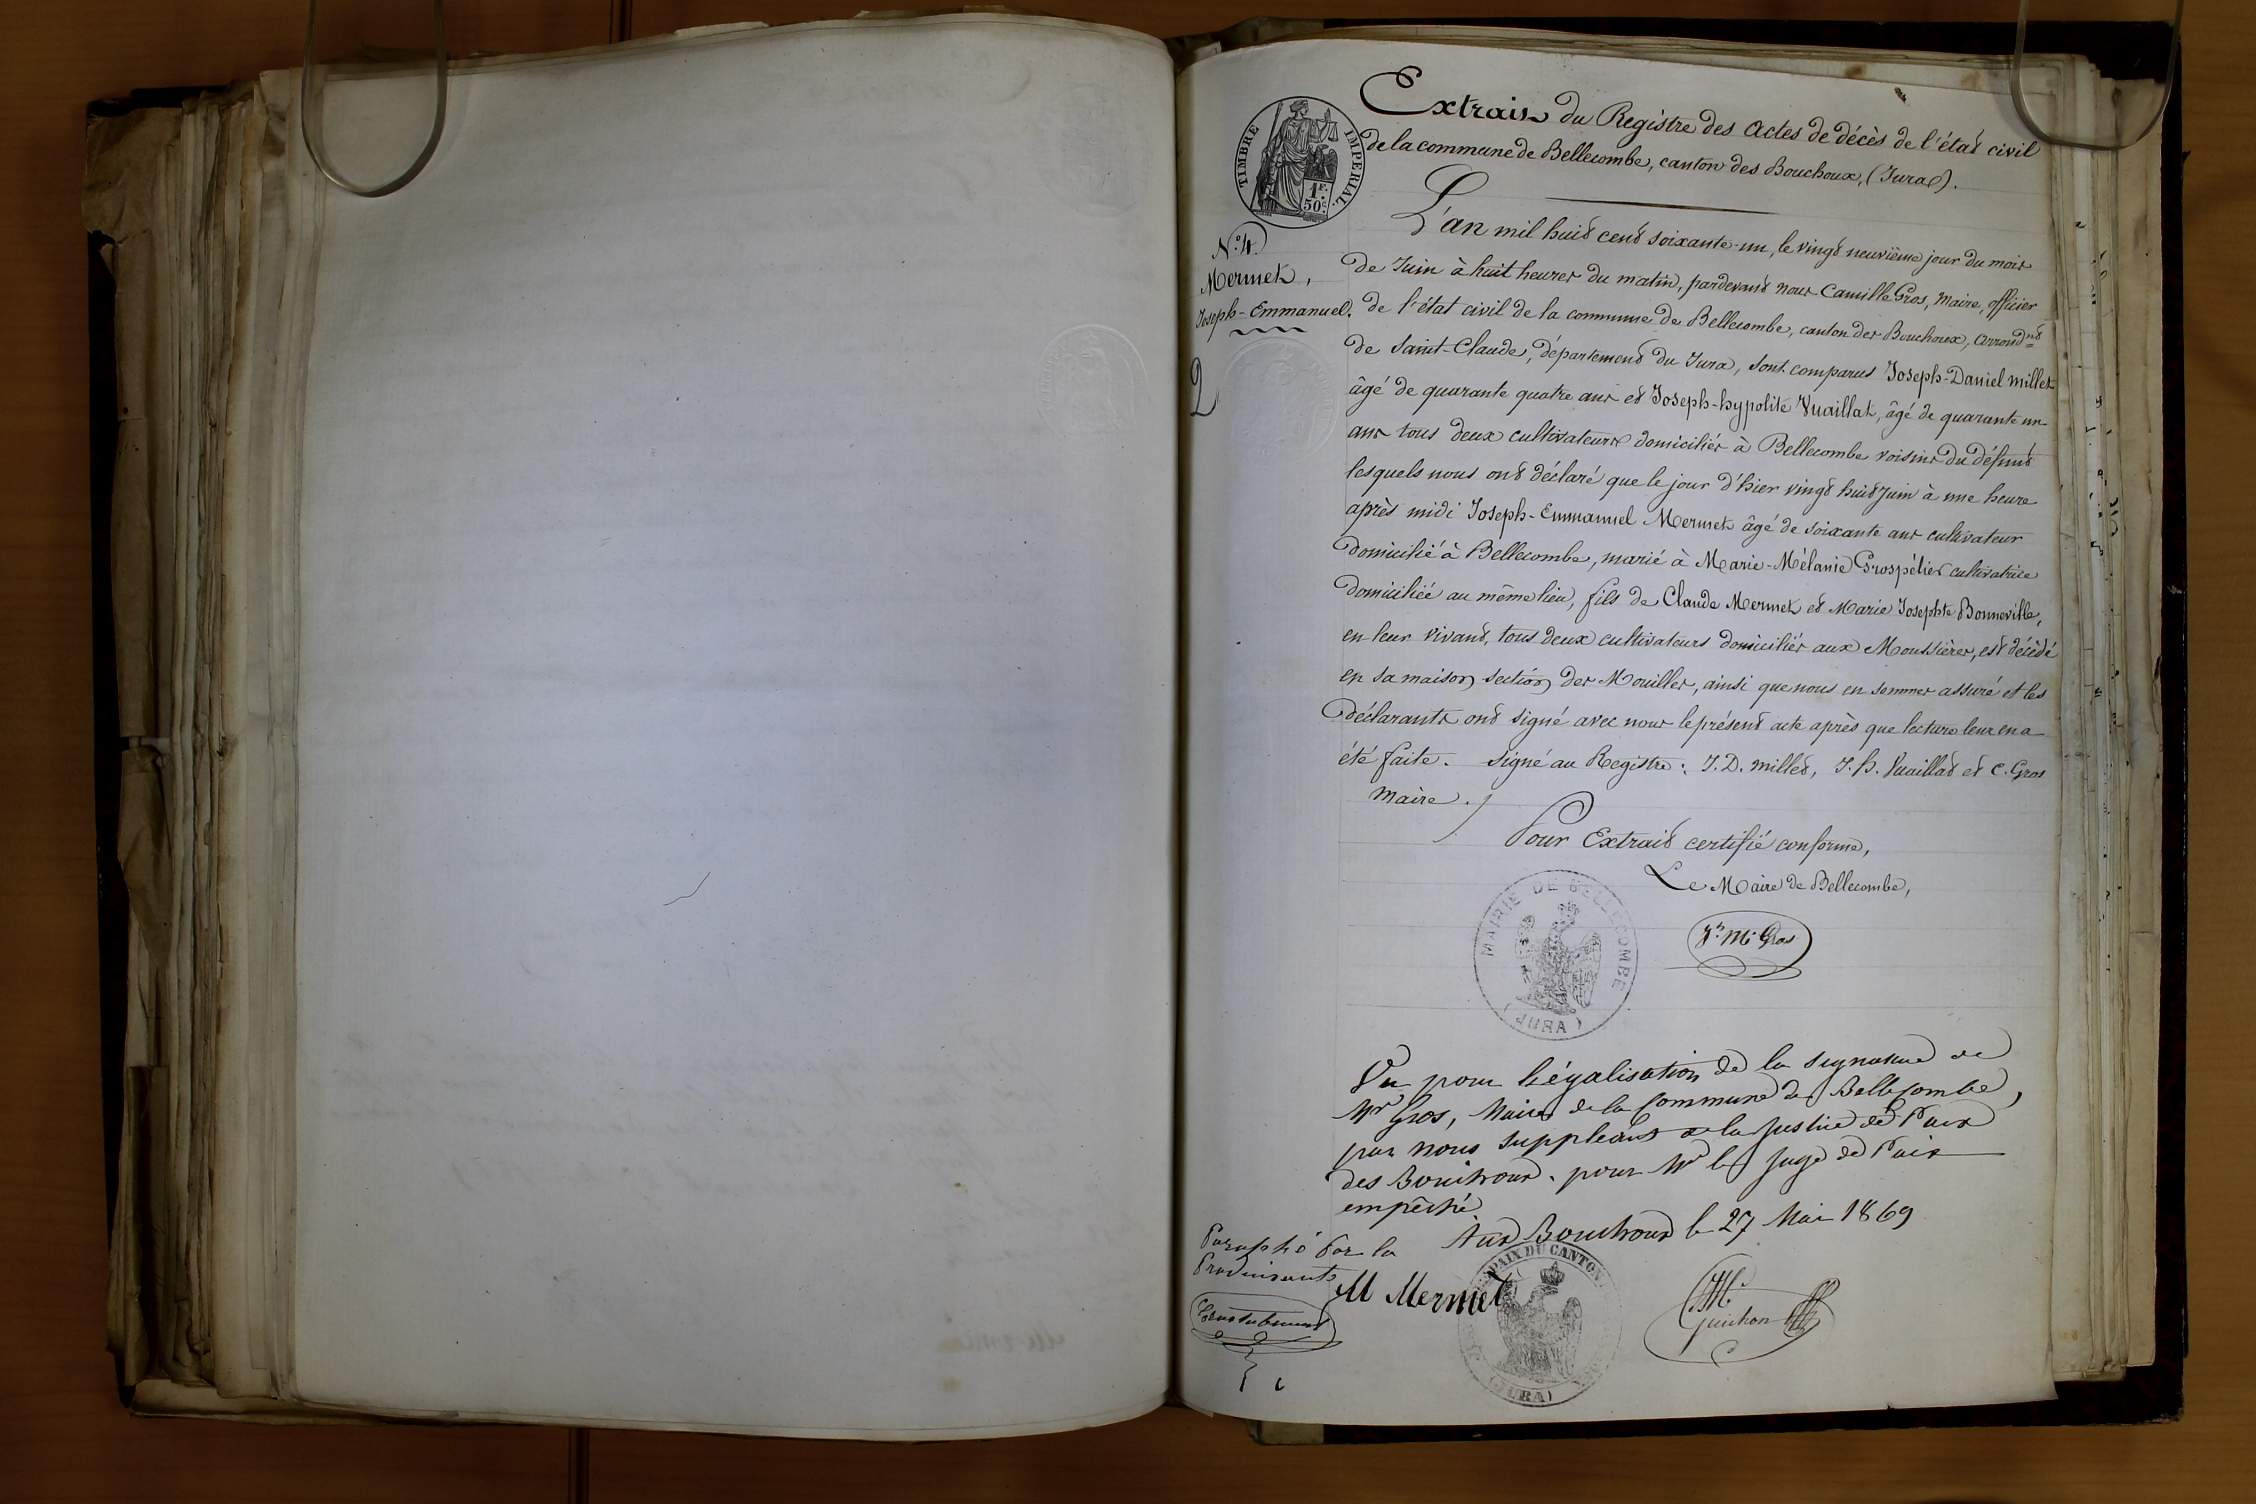 Extrait du Registre des actes de décès de l'état civil
de la commune de Bellecombe, canton des Bouchoux, (Jura).
TIMBRE IMPERIAL.
1F. 50c.
N°. 4.
Mermet,
Joseph-Emmanuel.
2
L'an mil huit cent soixante-un, le vingt neuvième jour du mois
de Juin à huit heures du matin, pardevant nous Camille Gros, Maire, officier
de l'état civil de la commune de Bellecombe, canton des Bouchoux, arrond.nt
de Saint-Claude, département du Jura, sont comparus Joseph-Daniel Millet
âgé de quarante quatre ans et Joseph-hypolite Vuaillat, âgé de quarante un
ans tous deux cultivateurs domiciliés à Bellecombe voisins du défunt
lesquels nous ont déclaré que le jour d'hier vingt huit Juin à une heure
après midi Joseph-Emmanuel Mermet âgé de soixante ans cultivateur
domicilié à Bellecombe, marié à Marie-Mélanie Grospélier cultivatrice
domiciliée au même lieu, fils de Claude Mermet et Marie Josephte Bonneville,
en leur vivant, tous deux cultivateurs domiciliés aux Moussières, est décédé
en sa maison section des Mouilles, ainsi que nous en sommes assuré et les
déclarants ont signé avec nous le présent acte après que lecture leur en a
été faite. Signé au Registre : J.D. millet, J.h. Vuaillat et C. Gros
Maire.
Pour Extrait certifié conforme,
Le Maire de Bellecombe,
MAIRIE DE BELLECOMBE
(JURA)
Jh Mi Gros
Vu pour légalisation de la signature de
Mr Gros, Maire de la Commune de Bellecombe,
par nous suppléant de la Justice de Paix
des Bouchoux, pour Mr le Juge de Paix
empêché
Aux Bouchoux le 27 Mai 1869
Paraphé par la
Produisante
M Mermet
PAIX DU CANTON
(JURA)
Guichon